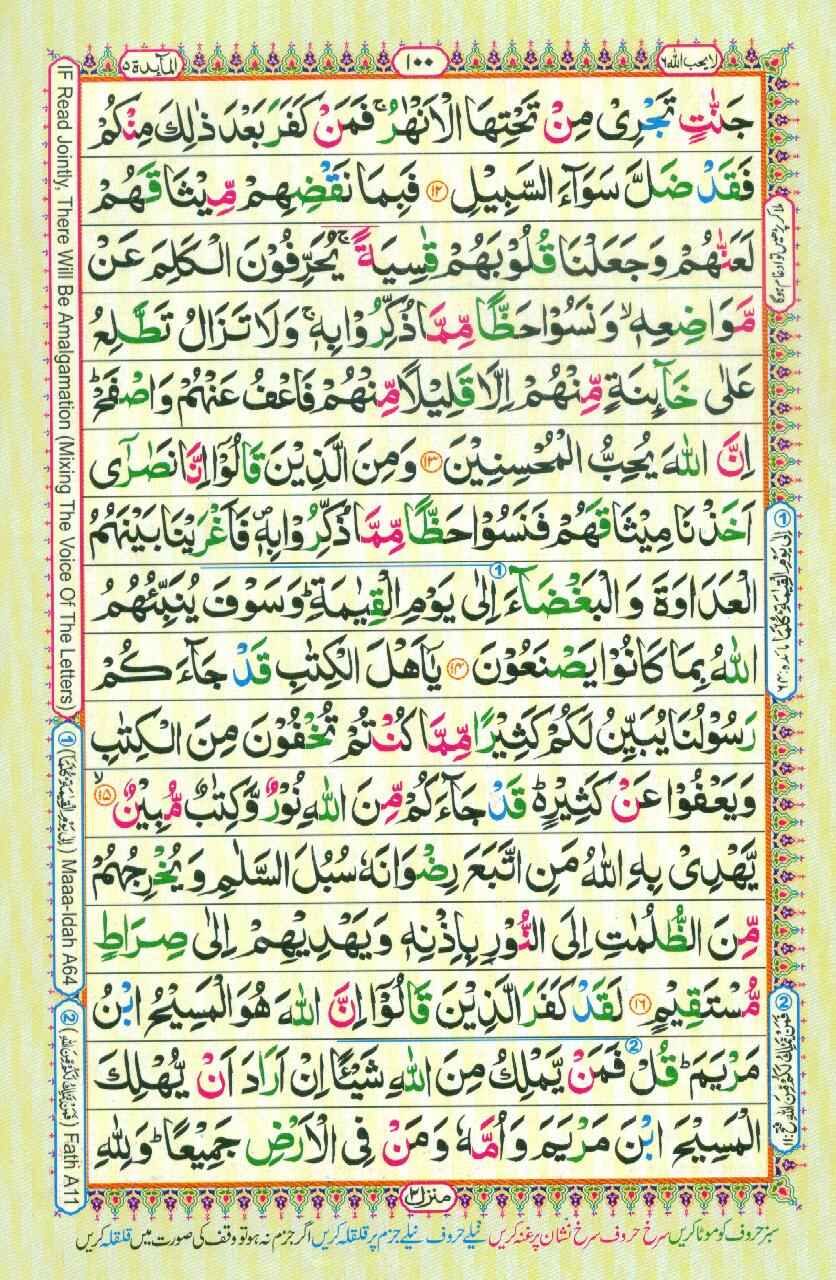 لا يحب الله ٦
١٠٠
المآئدة ٥
جَنّٰتٍ تَجْرِىْ مِنْ تَحْتِهَا الْاَنْهٰرُ ۚ فَمَنْ كَفَرَ بَعْدَ ذٰلِكَ مِنْكُمْ
فَقَدْ ضَلَّ سَوَآءَ السَّبِيْلِ ﴿۱۲﴾ فَبِمَا نَقْضِهِمْ مِّيْثَاقَهُمْ
لَعَنّٰهُمْ وَجَعَلْنَا قُلُوْبَهُمْ قٰسِيَةً ۚ يُحَرِّفُوْنَ الْكَلِمَ عَنْ
مَّوَاضِعِهٖ ۙ وَنَسُوْا حَظًّا مِّمَّا ذُكِّرُوْا بِهٖ ۚ وَلَا تَزَالُ تَطَّلِعُ
عَلٰى خَآىِٕنَةٍ مِّنْهُمْ اِلَّا قَلِيْلًا مِّنْهُمْ فَاعْفُ عَنْهُمْ وَاصْفَحْ ؕ
اِنَّ اللّٰهَ يُحِبُّ الْمُحْسِنِيْنَ ﴿۱۳﴾ وَمِنَ الَّذِيْنَ قَالُوْۤا اِنَّا نَصٰرٰٓى
اَخَذْنَا مِيْثَاقَهُمْ فَنَسُوْا حَظًّا مِّمَّا ذُكِّرُوْا بِهٖ ۪ فَاَغْرَيْنَا بَيْنَهُمُ
الْعَدَاوَةَ وَالْبَغْضَآءَ اِلٰى يَوْمِ الْقِيٰمَةِ ؕ وَسَوْفَ يُنَبِّئُهُمُ
اللّٰهُ بِمَا كَانُوْا يَصْنَعُوْنَ ﴿۱۴﴾ يٰۤاَهْلَ الْكِتٰبِ قَدْ جَآءَكُمْ
رَسُوْلُنَا يُبَيِّنُ لَكُمْ كَثِيْرًا مِّمَّا كُنْتُمْ تُخْفُوْنَ مِنَ الْكِتٰبِ
وَيَعْفُوْا عَنْ كَثِيْرٍ ؕ۬ قَدْ جَآءَكُمْ مِّنَ اللّٰهِ نُوْرٌ وَّكِتٰبٌ مُّبِيْنٌ ۙ﴿۱۵﴾
يَّهْدِىْ بِهِ اللّٰهُ مَنِ اتَّبَعَ رِضْوَانَهٗ سُبُلَ السَّلٰمِ وَيُخْرِجُهُمْ
مِّنَ الظُّلُمٰتِ اِلَى النُّوْرِ بِاِذْنِهٖ وَيَهْدِيْهِمْ اِلٰى صِرَاطٍ
مُّسْتَقِيْمٍ ﴿۱۶﴾ لَقَدْ كَفَرَ الَّذِيْنَ قَالُوْۤا اِنَّ اللّٰهَ هُوَ الْمَسِيْحُ ابْنُ
مَرْيَمَ ؕ قُلْ فَمَنْ يَّمْلِكُ مِنَ اللّٰهِ شَيْـًٔا اِنْ اَرَادَ اَنْ يُّهْلِكَ
الْمَسِيْحَ ابْنَ مَرْيَمَ وَاُمَّهٗ وَمَنْ فِى الْاَرْضِ جَمِيْعًا ؕ وَلِلّٰهِ
منزل ٢
سبز حروف کو موٹا کریں سرخ حروف سرخ نشان پر غنہ کریں نیلے حروف نیلے جزم پر قلقلہ کریں اگر جزم نہ ہو تو وقف کی صورت میں قلقلہ کریں
IF Read Jointly, There Will Be Amalgamation (Mixing The Voice Of The Letters)
① Maaa-Idah A64
② Fath A11
ملا کر پڑھیں تو ادغام ہوگا
①
②